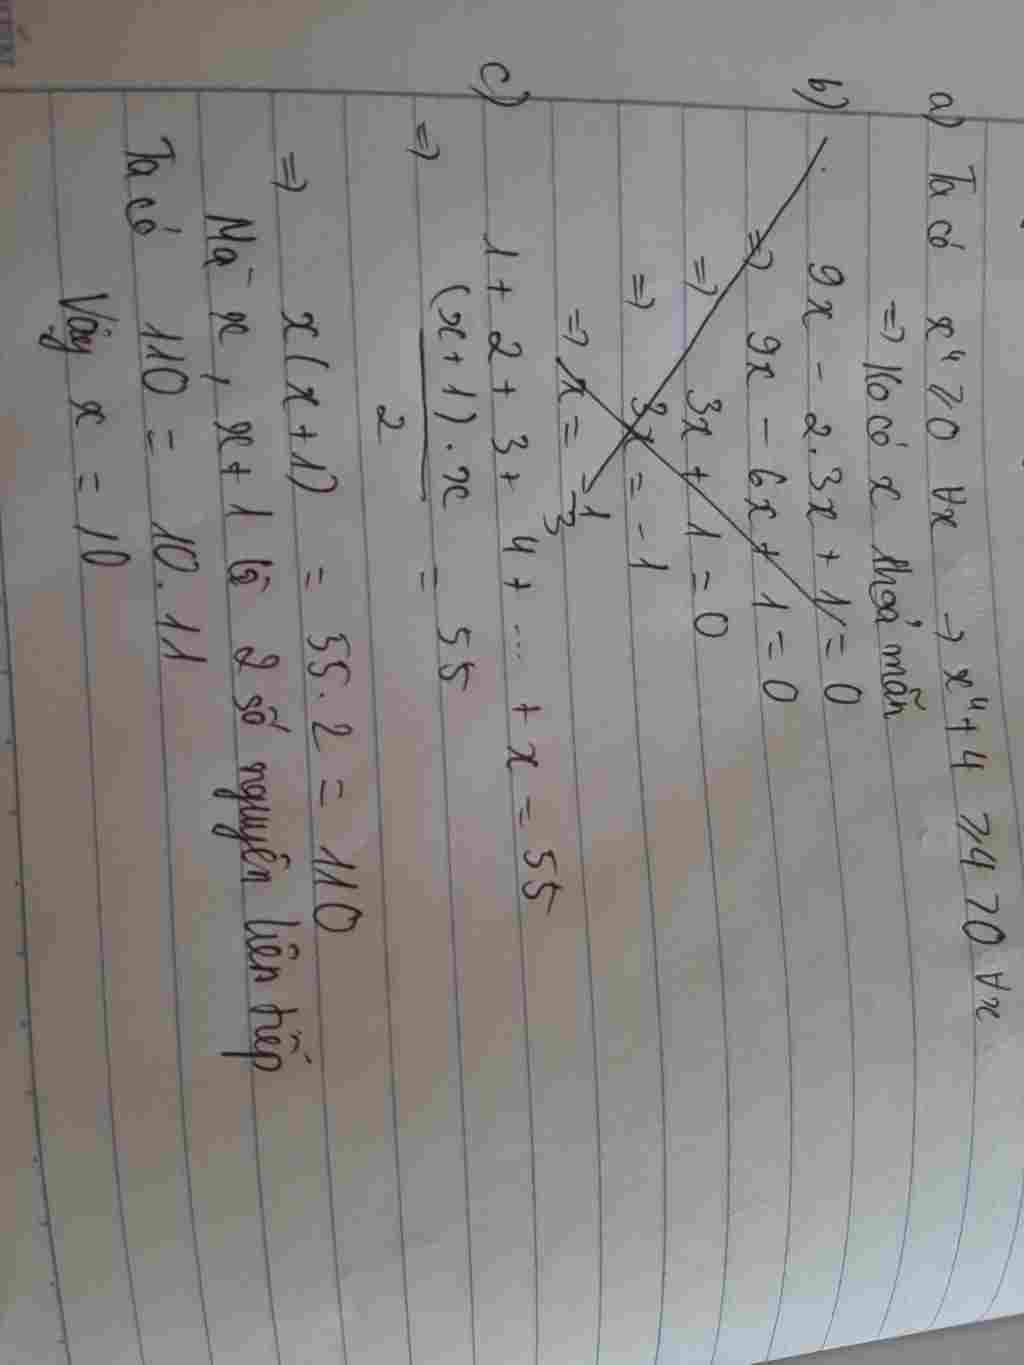 a) Ta có x⁴ ⩾0 ∀x → x⁴+4 ⩾4 >0 ∀x
=> Ko có x thoả mãn
b) 9x - 2.3x + 1 = 0
=> 9x - 6x + 1 = 0
=> 3x + 1 = 0
=> 3x = -1
=> x = -1/3
c) 1 + 2 + 3 + 4 + ... + x = 55
=> (x+1).x / 2 = 55
=> x(x+1) = 55.2 = 110
Mà x, x+1 là 2 số nguyên liên tiếp
Ta có 110 = 10.11
Vậy x = 10